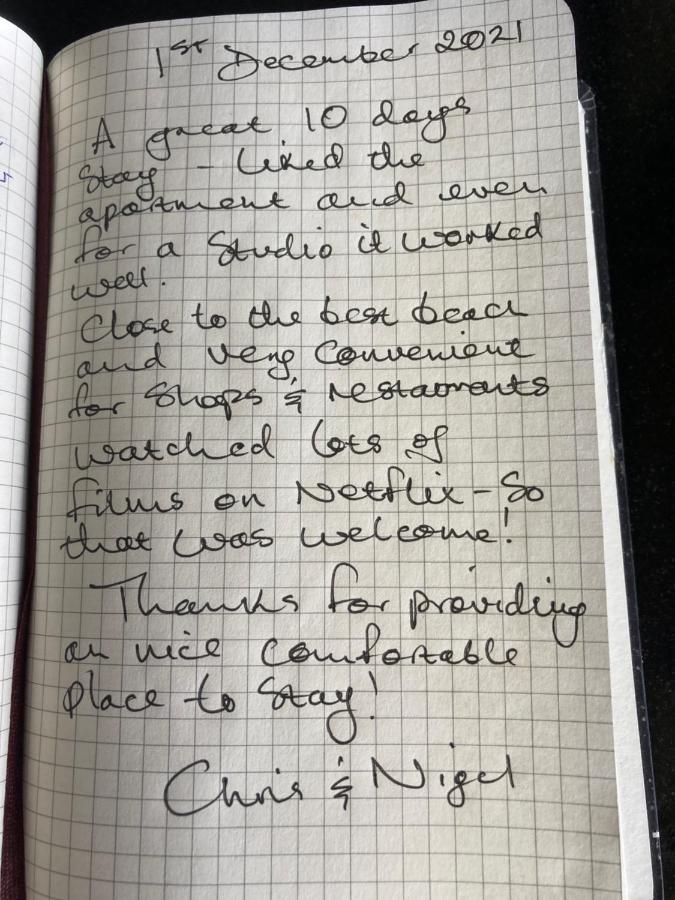 1st December 2021
A great 10 days
stay - liked the
apartment and even
for a Studio it worked
well.
Close to the best beach
and very convenient
for Shops & restaurants
watched lots of
films on Netflix - So
that was welcome!
Thanks for providing
an nice comfortable
place to stay!
Chris & Nigel